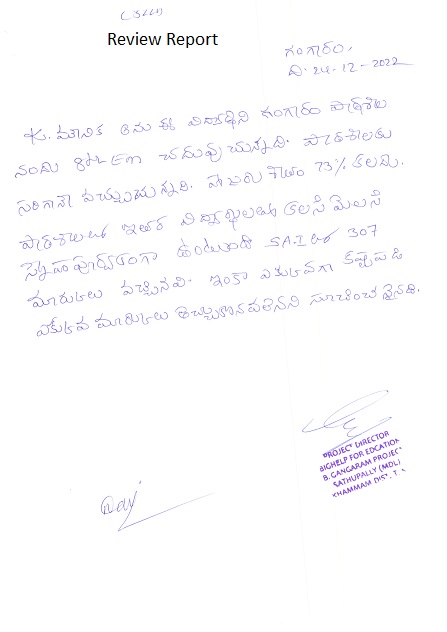 Review Report
గంగారం,
ది. 24-12-2022
K. మౌనిక అను ఈ విద్యార్థిని గంగారం పాఠశాల
నందు 8th E/m చదువుచున్నది. పాఠశాలకు
సరిగానే వచ్చుచున్నది. హాజరు శాతం 73% కలదు.
పాఠశాలలో ఇతర విద్యార్థులతో కలసి మెలసి
స్నేహపూర్వకంగా ఉంటుంది S.A.I లో 307
మార్కులు వచ్చినవి. ఇంకా ఎక్కువగా కష్టపడి
ఎక్కువ మార్కులు తెచ్చుకొనవలెనని సూచించనైనది.
PROJECT DIRECTOR
BIGHELP FOR EDCATION
B. GANGARAM PROJECT
SATHUPALLY (MDL)
KHAMMAM DIST. T.